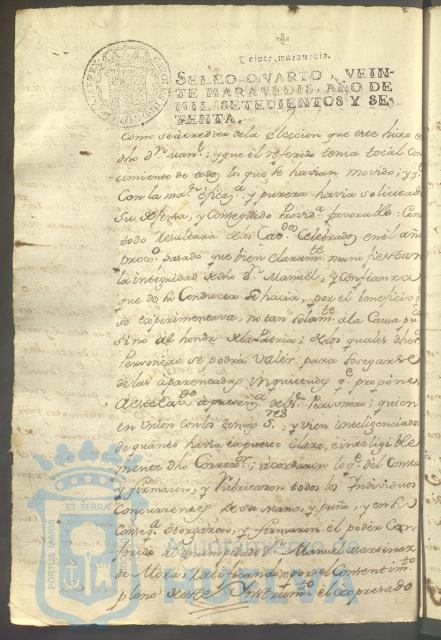 SELLO QVARTO, VEIN-
TE MARAVEDIS, AÑO DE
MIL SETECIENTOS Y SE-
TENTA.
Como se acredita dela Eleccion que este hizo en
dho Dn Juan; y que el referido tenia total Cono-
cimiento de todos los que se havian movido; y qe
Con la mar eficaca y pureza havia solicitado
Su defensa, y Conseguido Provida favorable: Como
todo resultaria delos Cavdos Celebrados en el año
proco pasado que bien claramte manifiestan
la integridad de dho Dn Manuel, y Confianza
que de su Conducta se hacia, por el beneficio qe
se experimentava, no tan solamte ala Causa pu
sino al honor dela Patria; delos quales dho
Personero se podra valer para sosegarse
delas aparentadas inquietudes qe propone
a este
en Union Con los demas Sres, y vien inteligenciados
de quanto havia expuesto Clara, e inteligible
mente dho Correxor; acordaron lo qe del Consta
y firmaron, y Rubricaron todos los Individuos
Concurrentes de su mano, y puño, y en Su
Consega otorgaron, y firmaron el poder Con
ferido al enunpciado Dn Manuel Martinez
de Mora, ratificandose por el Consentimto
pleno de este Instrumto el expresado
PORTUS MARIS ET TERRA
Ayuntamiento de